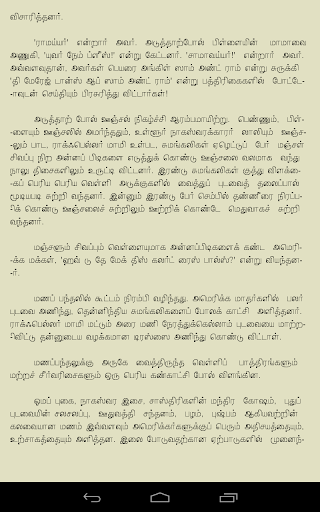 விசாரித்தனர்.
'ராமய்யர்' என்றார் அவர். அடுத்தாற்போல் பிள்ளையின் மாமாவை
அணுகி, 'யுவர் நேம் ப்ளீஸ்!' என்று கேட்டனர். 'சாமாவய்யர்!' என்றார் அவர்.
அவ்வளவுதான். அவர்கள் பெயரை அங்கிள் ஸாம் அண்ட் ராம் என்று சுருக்கி
'தி மேரேஜ் டான்ஸ் ஆப் ஸாம் அண்ட் ராம்' என்று பத்திரிகைகளில் போட்டோ-
-வுடன் செய்தியும் பிரசுரித்து விட்டார்கள்!
அடுத்தாற் போல் ஊஞ்சல் நிகழ்ச்சி ஆரம்பமாயிற்று. பெண்ணும், பிள்-
-ளையும் ஊஞ்சலில் அமர்ந்ததும், உள்ளூர் நாகஸ்வரக்காரர் லாலியும் ஊஞ்ச-
-லும் பாட, ராக்ஃபெல்லர் மாமி உள்பட, சுமங்கலிகள் ஏழெட்டுப் பேர் மஞ்சள்
சிவப்பு நிற அன்னப் பிடிகளை எடுத்துக் கொண்டு ஊஞ்சலை வலமாக வந்து
நாலு திசைகளிலும் உருட்டி விட்டனர். இரண்டு சுமங்கலிகள் குத்து விளக்-
-கைப் பெரிய பெரிய வெள்ளி அடுக்குகளில் வைத்துப் புடவைத் தலைப்பால்
மூடியபடி சுற்றி வந்தனர். இன்னும் இரண்டு பேர் செம்பில் தண்ணீரை நிரப்ப-
-ிக் கொண்டு ஊஞ்சலைச் சுற்றிலும் ஊற்றிக் கொண்டே மெதுவாகச் சுற்றி
வந்தனர்.
மஞ்சளும் சிவப்பும் வெள்ளையுமாக அன்னப்பிடிகளைக் கண்ட அமெரி-
-க்க மக்கள், 'ஹவ் டு தே மேக் தீஸ் கலர்ட் ரைஸ் பால்ஸ்?' என்று வியந்தன-
-ர்.
மணப் பந்தலில் கூட்டம் நிரம்பி வழிந்தது. அமெரிக்க மாதர்களில் பலர்
புடவை அணிந்து, தென்னிந்திய சுமங்கலிகளைப் போலக் காட்சி அளித்தனர்.
ராக்ஃபெல்லர் மாமி மட்டும் அரை மணி நேரத்துக்கெல்லாம் புடவையை மாற்ற-
-ிவிட்டு தன்னுடைய வழக்கமான டிரஸ்ஸை அணிந்து கொண்டு விட்டாள்.
மணப்பந்தலுக்கு அருகே வைத்திருந்த வெள்ளிப் பாத்திரங்களும்
மற்றச் சீர்வரிசைகளும் ஒரு பெரிய கண்காட்சி போல் விளங்கின.
ஓமப் புகை, நாகஸ்வர இசை, சாஸ்திரிகளின் மந்திர கோஷம், புதுப்
புடவையின் சலசலப்பு, ஊதுவத்தி சந்தனம், பழம், புஷ்பம் ஆகியவற்றின்
கலவையான மணம் இவ்வளவும் அமெரிக்கர்களுக்குப் பெரும் அதிசயத்தையும்,
உற்சாகத்தையும் அளித்தன. இலை போடுவதற்கான ஏற்பாடுகளில் முனைந்-